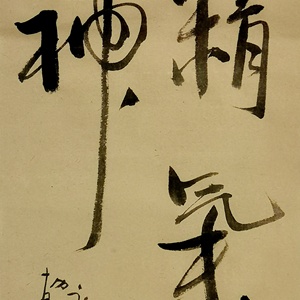 精氣
神